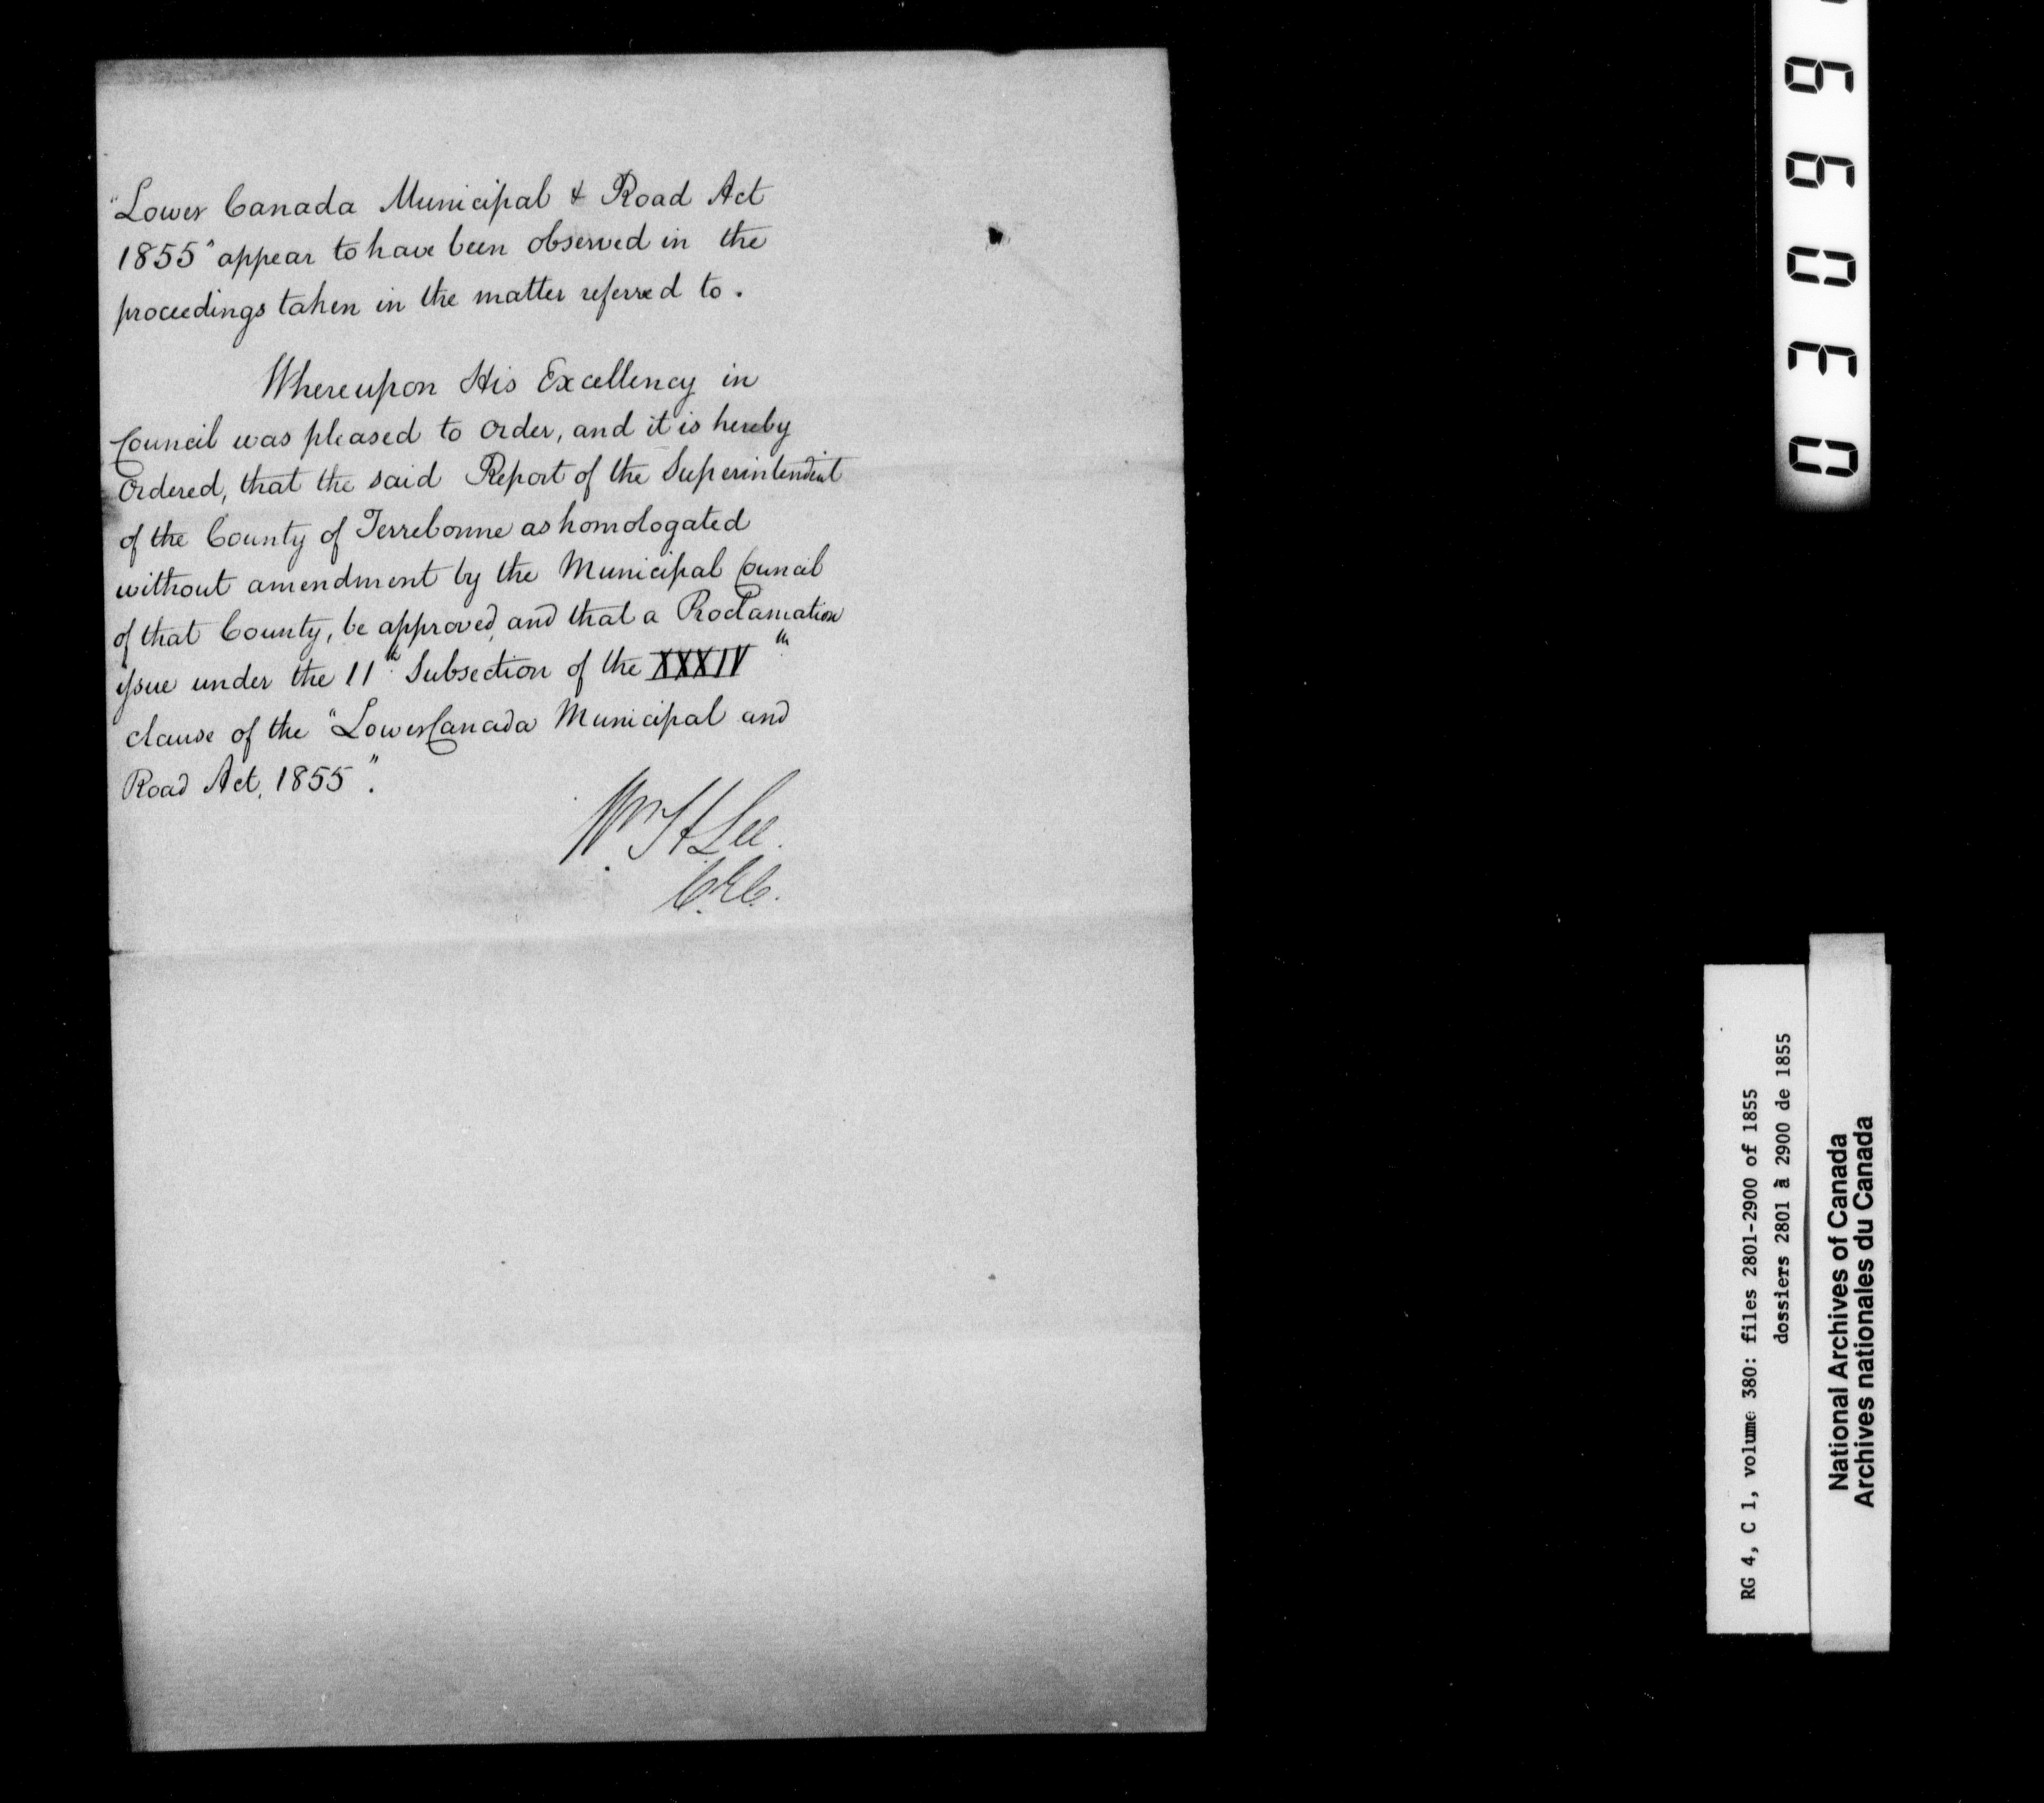 "Lower Canada Municipal & Road Act
1855" appear to have been observed in the
proceedings taken in the matter referred to.
Whereupon His Excellency in
Council was pleased to Order, and it is hereby
Ordered, that the said Report of the Superintendent
of the County of Terrebonne as homologated
without amendment by the Municipal Council
of that County, be approved, and that a Proclamation
issue under the 11th Subsection of the XXXIV th
clause of the "Lower Canada Municipal and
Road Act, 1855".
Wm H Lee.
C.E.C.
RG 4, C 1, volume 380: files 2801-2900 of 1855
dossiers 2801 à 2900 de 1855
National Archives of Canada
Archives nationales du Canada